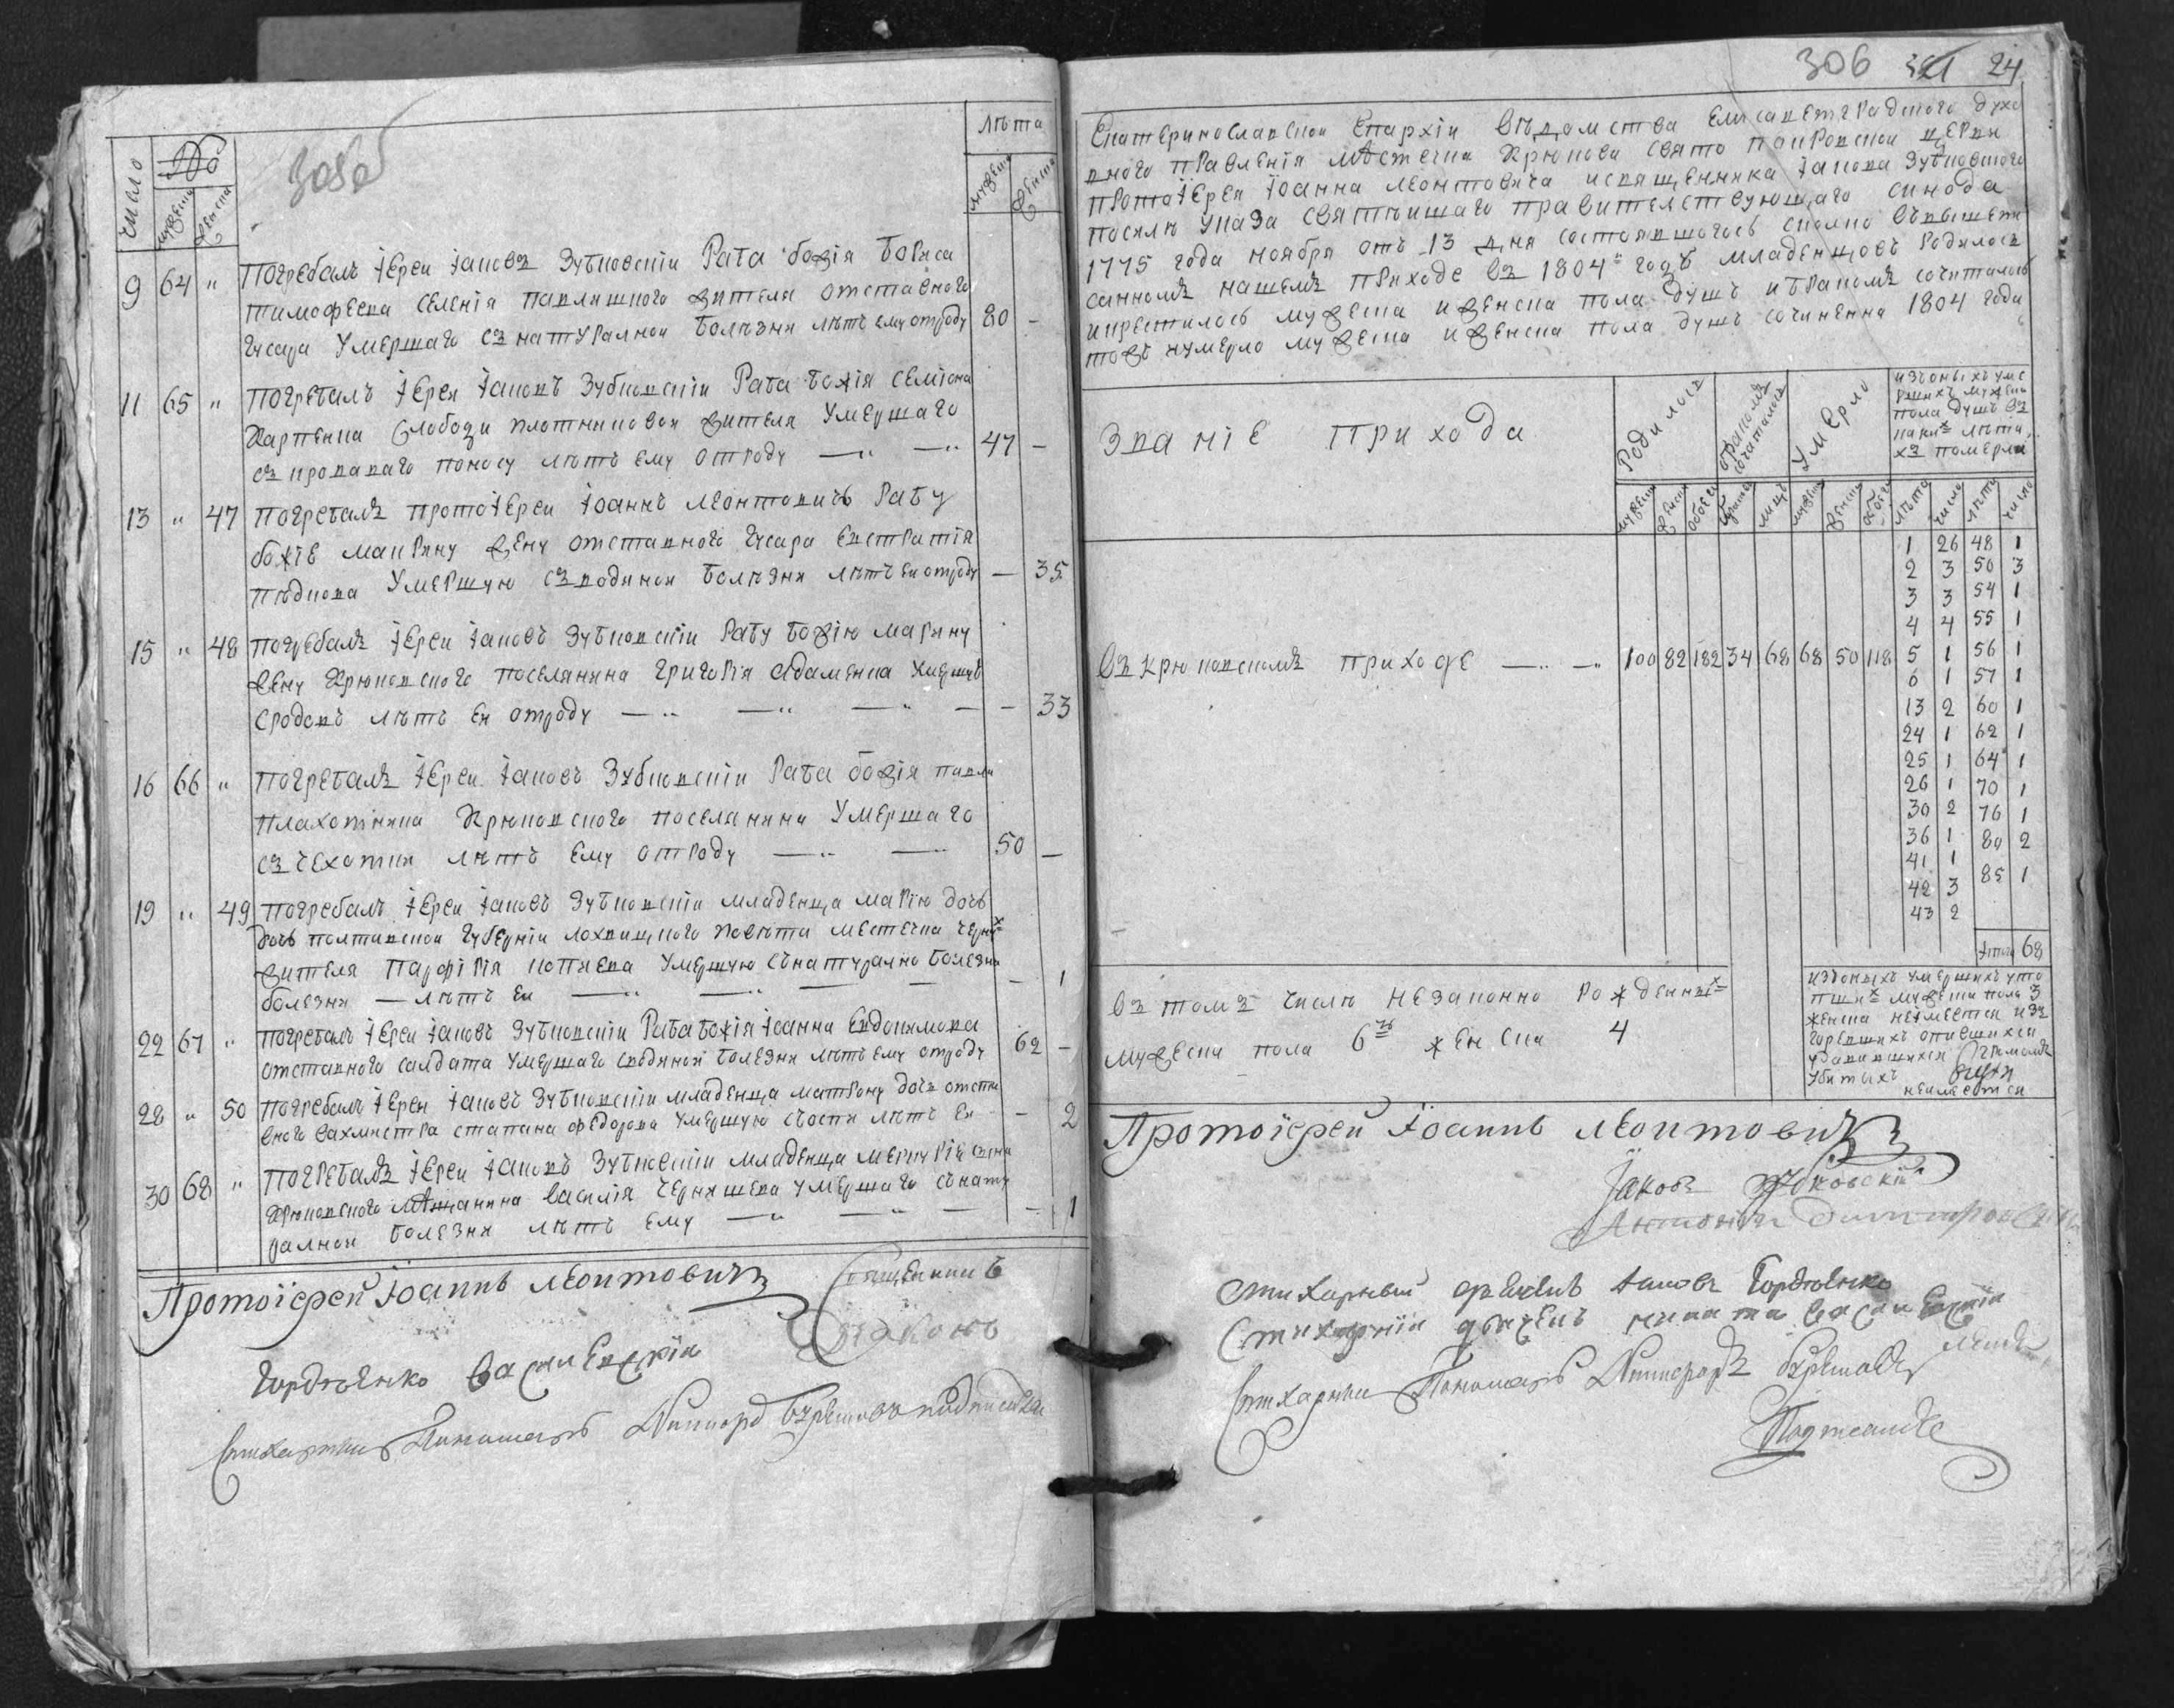 305 об
число № мужеска женска лѣта мужеска женска
9 64 " Погребалъ Іереи Іаковъ Зубковскіи Раба божія Бориса
тимофеева селенія павлишного жителя отставного
Гусара Умершаго съ натуралнои Болѣзни лѣтъ ему отроду 80 -
11 65 " Погребалъ Іереи Іаковъ Зубковскіи Раба божія Семіона
Карпенка Слободи плотниковои жителя Умершаго
съ кроваваго поносу лѣтъ ему отроду — " — " 47 -
13 " 47 Погребалъ протоіереи Іоаннъ Леонтовичъ Рабу
божіе макрину жену отставного Гусара Евстратія
Умершую съ родинои Болѣзни лѣтъ еи отроду — 35
15 " 48 Погребалъ Іереи Іаковъ Зубковскіи Рабу Божію марину
жену Крюковского поселянина Григорія Адаменка Умершую
сродовъ лѣтъ Еи отроду — " — " — " — - 33
16 66 " Погребалъ Іереи Іаковъ Зубковскіи Раба божія павла
плахотника Крюковского поселянина Умершаго
съ чехотки лѣтъ Ему отроду — " — " 50 —
19 " 49 Погребалъ Іереи Іаковъ Зубковскіи младенца марію дочь
дочь полтавскои Губерніи лохвицкого повѣта местечка Чернух
жителя Парфірія Умершую сънатурално болезни
болезни — лѣтъ Еи — " — " — — - 1
22 67 " Погребалъ Іереи Іаковъ Зубковскіи Раба божія Іоанна Евдокимова
отставного салдата Умершаго сводянои Болезни лѣтъ ему отроду 62 -
28 " 50 Погребалъ Іереи Іаковъ Зубковскіи младенца матрону дочь отста
вного вахмистра стапана федорова Умершую съоспи лѣтъ Еи - - 2
30 68 " Погребалъ Іереи Іаковъ Зубковскіи младенца меркурія сина
Крюковского мѣщанина василія Чернишева Умершаго сънату
ралнои Болезни лѣтъ Ему — " — " — - 1
Протоіерей Іоаннъ Леонтовичъ Священникъ
Іяковъ
Гордѣенко Василевскіи
Стихарныи Пономарь Никифоръ подписался
306 321 24
Екатеринославскои Епархіи Вѣдомства Елисаветградского духо
вного правленія мѣстечка Крюкова свято покровскои церкви
протоіерея Іоанна Леонтовича исвященника Іакова Зубковского
посилѣ Указа святѣишаго правителствующаго синода
1775 года ноября отъ 13 дня состоявшогось сколко въвишепи
санномъ нашемъ приходе въ 1804" годѣ младенцовъ Родилось
икрестилось мужеска иженска пола душъ ибракомъ сочиталось
иумерло мужеска иженска пола душъ сочиненна 1804 года
Званіе прихода Родилось бракомъ сочиталось Умерло изъонихъ уме
ршихъ мужска
пола душъ въ
каких лѣта
хъ померли
мужеска женска обоего лицъ мужеска женска обоего лѣта число лѣта число
Въ крюковскомъ приходе — " — " 100 82 182 34 68 68 50 118
1 26 48 1
2 3 50 3
3 3 54 1
4 4 55 1
5 1 56 1
6 1 57 1
13 2 60 1
24 1 62 1
25 1 64 1
26 1 70 1
30 2 76 1
36 1 80 2
41 1 85 1
42 3
43 2
Итого 68
Въ томъ числѣ незаконно рожденних
мужеска пола 6 женска 4
изъонихъ умершихъ уто
пших мужеска пола 3
женска неімеется изъ
горѣвшихъ опившихся
удавившихся
убитыхъ
неимеется
Протоіерей Іоаннъ Леонтовичъ
Іаковъ Зубковскій
Стихарный Іаковъ Гордѣенко
Стихарніи Василевскіи
Стихарныи Пономарь Никифоръ